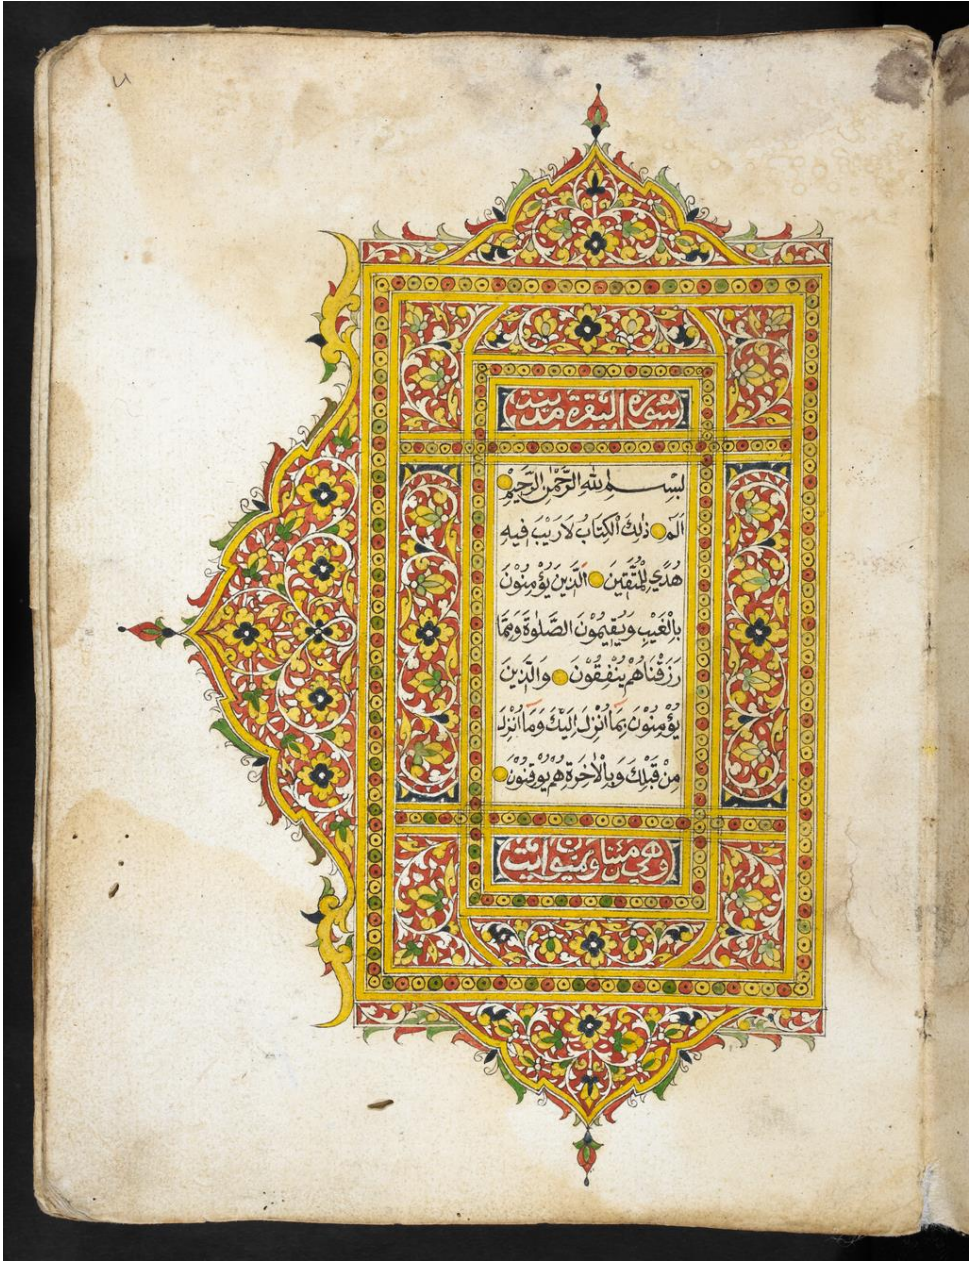 سورة البقرة مدنية
بسم الله الرَّحْمٰنِ الرَّحِيْمِ
الٓمٓ ذٰلِكَ الْكِتَابُ لَارَيْبَ فِيْهِ
هُدًي لِلْمُتَّقِيْنَ الَّذِيْنَ يُؤْمِنُوْنَ
بِالْغَيْبِ وَيُقِيْمُوْنَ الصَّلٰوةَ وَمِمَّا
رَزَقْنَاهُمْ يُنْفِقُوْنَ وَالَّذِيْنَ
يُؤْمِنُوْنَ بِمَآ اُنْزِلَ اِلَيْكَ وَمَآ اُنْزِلَ
مِنْ قَبْلِكَ وَبِالْاٰخِرَةِ هُمْ يُوْقِنُوْنَ
وهي مئتا